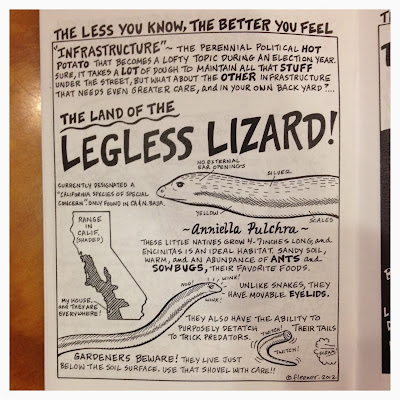 THE LESS YOU KNOW, THE BETTER YOU FEEL
"INFRASTRUCTURE" ~ THE PERENNIAL POLITICAL HOT
POTATO THAT BECOMES A LOFTY TOPIC DURING AN ELECTION YEAR.
SURE, IT TAKES A LOT OF DOUGH TO MAINTAIN ALL THAT STUFF
UNDER THE STREET, BUT WHAT ABOUT THE OTHER INFRASTRUCTURE
THAT NEEDS EVEN GREATER CARE, and IN YOUR OWN BACK YARD?...
THE LAND OF THE
LEGLESS LIZARD!
NO EXTERNAL
EAR OPENINGS
SILVER
CURRENTLY DESIGNATED A
"CALIFORNIA SPECIES OF SPECIAL
CONCERN" ONLY FOUND IN CA & N. BAJA.
YELLOW
SCALES
RANGE
IN CALIF.
(SHADED)
~Anniella Pulchra~
THESE LITTLE NATIVES GROW 4-7 INCHES LONG, and
ENCINITAS IS AN IDEAL HABITAT. SANDY SOIL,
WARM, and AN ABUNDANCE OF ANTS and
SOWBUGS, THEIR FAVORITE FOODS.
MY HOUSE,
and THEY ARE
EVERYWHERE!
WINK!
WINK!
UNLIKE SNAKES, THEY
HAVE MOVABLE EYELIDS.
THEY ALSO HAVE THE ABILITY TO
PURPOSELY DETATCH THEIR TAILS
TO TRICK PREDATORS.
TWITCH!
TWITCH!
GARDENERS BEWARE! THEY LIVE JUST
BELOW THE SOIL SURFACE. USE THAT SHOVEL WITH CARE!!
2012